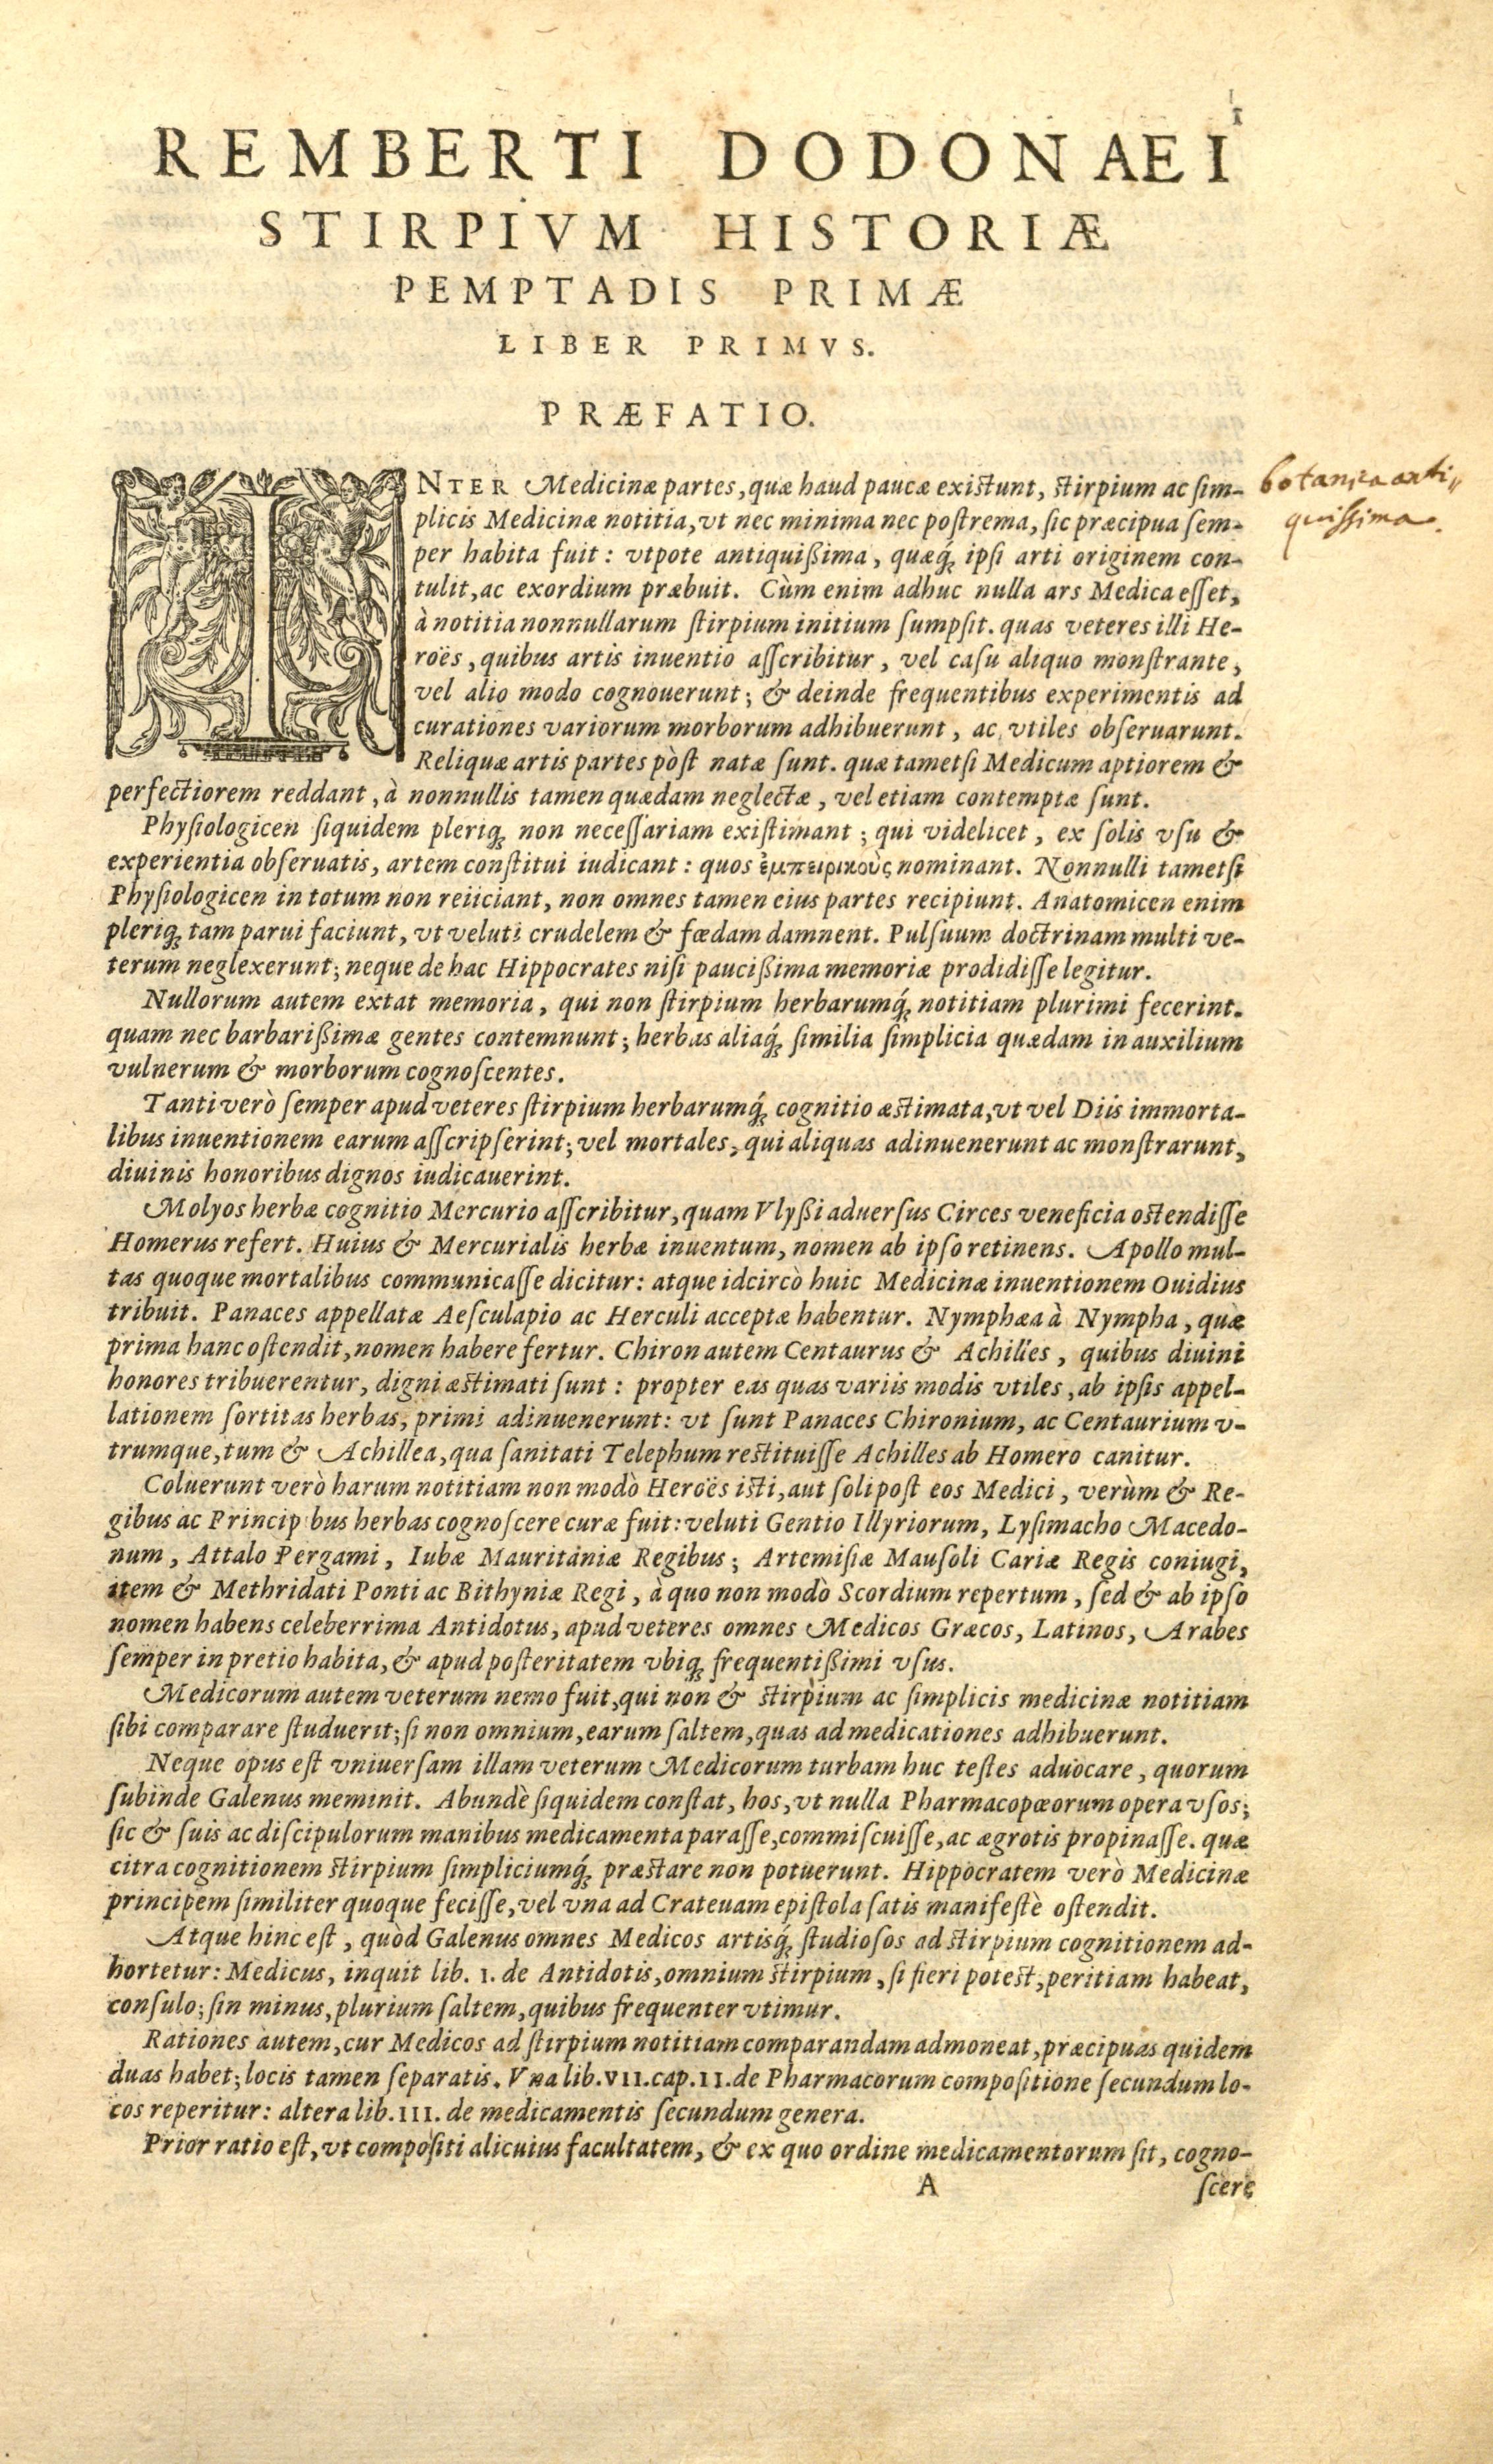 1
REMBERTI DODONAEI
STIRPIVM HISTORIÆ
PEMPTADIS PRIMÆ
LIBER PRIMVS.
PRÆFATIO.
INTER Medicinæ partes, quæ haud paucæ existunt, stirpium ac sim-
plicis Medicinæ notitia, vt nec minima nec postrema, sic præcipua sem-
per habita fuit: vtpote antiquißima, quæq́; ipsi arti originem con-
tulit, ac exordium præbuit. Cùm enim adhuc nulla ars Medica esset,
à notitia nonnullarum stirpium initium sumpsit. quas veteres illi He-
roës, quibus artis inuentio asscribitur, vel casu aliquo monstrante,
vel alio modo cognouerunt; & deinde frequentibus experimentis ad
curationes variorum morborum adhibuerunt, ac vtiles obseruarunt.
Reliquæ artis partes pòst natæ sunt. quæ tametsi Medicum aptiorem &
perfectiorem reddant, à nonnullis tamen quædam neglectæ, vel etiam contemptæ sunt.
Physiologicen siquidem pleriq; non necessariam existimant; qui videlicet, ex solis vsu &
experientia obseruatis, artem constitui iudicant: quos ἐμπειρικοὺς nominant. Nonnulli tametsi
Physiologicen in totum non reiiciant, non omnes tamen eius partes recipiunt. Anatomicen enim
pleriq; tam parui faciunt, vt veluti crudelem & fœdam damnent. Pulsuum doctrinam multi ve-
terum neglexerunt; neque de hac Hippocrates nisi paucißima memoriæ prodidisse legitur.
Nullorum autem extat memoria, qui non stirpium herbarumq́; notitiam plurimi fecerint.
quam nec barbarißimæ gentes contemnunt; herbas aliaq́; similia simplicia quædam in auxilium
vulnerum & morborum cognoscentes.
Tanti verò semper apud veteres stirpium herbarumq́; cognitio æstimata, vt vel Diis immorta-
libus inuentionem earum asscripserint; vel mortales, qui aliquas adinuenerunt ac monstrarunt,
diuinis honoribus dignos iudicauerint.
Molyos herbæ cognitio Mercurio asscribitur, quam Vlyßi aduersus Circes veneficia ostendisse
Homerus refert. Huius & Mercurialis herbæ inuentum, nomen ab ipso retinens. Apollo mul-
tas quoque mortalibus communicasse dicitur: atque idcircò huic Medicinæ inuentionem Ouidius
tribuit. Panaces appellatæ Aesculapio ac Herculi acceptæ habentur. Nymphæa à Nympha, quæ
prima hanc ostendit, nomen habere fertur. Chiron autem Centaurus & Achilles, quibus diuini
honores tribuerentur, digni æstimati sunt: propter eas quas variis modis vtiles, ab ipsis appel-
lationem sortitas herbas, primi adinuenerunt: vt sunt Panaces Chironium, ac Centaurium v-
trumque, tum & Achillea, qua sanitati Telephum restituisse Achilles ab Homero canitur.
Coluerunt verò harum notitiam non modò Heroës isti, aut soli post eos Medici, verùm & Re-
gibus ac Princip bus herbas cognoscere curæ fuit: veluti Gentio Illyriorum, Lysimacho Macedo-
num, Attalo Pergami, Iubæ Mauritaniæ Regibus; Artemisiæ Mausoli Cariæ Regis coniugi,
item & Methridati Ponti ac Bithyniæ Regi, à quo non modò Scordium repertum, sed & ab ipso
nomen habens celeberrima Antidotus, apud veteres omnes Medicos Græcos, Latinos, Arabes
semper in pretio habita, & apud posteritatem vbiq; frequentißimi vsus.
Medicorum autem veterum nemo fuit, qui non & stirpium ac simplicis medicinæ notitiam
sibi comparare studuerit; si non omnium, earum saltem, quas ad medicationes adhibuerunt.
Neque opus est vniuersam illam veterum Medicorum turbam huc testes aduocare, quorum
subinde Galenus meminit. Abundè siquidem constat, hos, vt nulla Pharmacopœorum opera vsos;
sic & suis ac discipulorum manibus medicamenta parasse, commiscuisse, ac ægrotis propinasse. quæ
citra cognitionem stirpium simpliciumq́; præstare non potuerunt. Hippocratem verò Medicinæ
principem similiter quoque fecisse, vel vna ad Crateuam epistola satis manifestè ostendit.
Atque hinc est, quòd Galenus omnes Medicos artisq́; studiosos ad stirpium cognitionem ad-
hortetur: Medicus, inquit lib. I. de Antidotis, omnium stirpium, si fieri potest, peritiam habeat,
consulo; sin minus, plurium saltem, quibus frequenter vtimur.
Rationes autem, cur Medicos ad stirpium notitiam comparandam admoneat, præcipuas quidem
duas habet; locis tamen separatis. Vna lib. VII. cap. II. de Pharmacorum compositione secundum lo-
cos reperitur: altera lib. III. de medicamentis secundum genera.
Prior ratio est, vt compositi alicuius facultatem, & ex quo ordine medicamentorum sit, cogno-
A scere
botanica anti„
quissima.